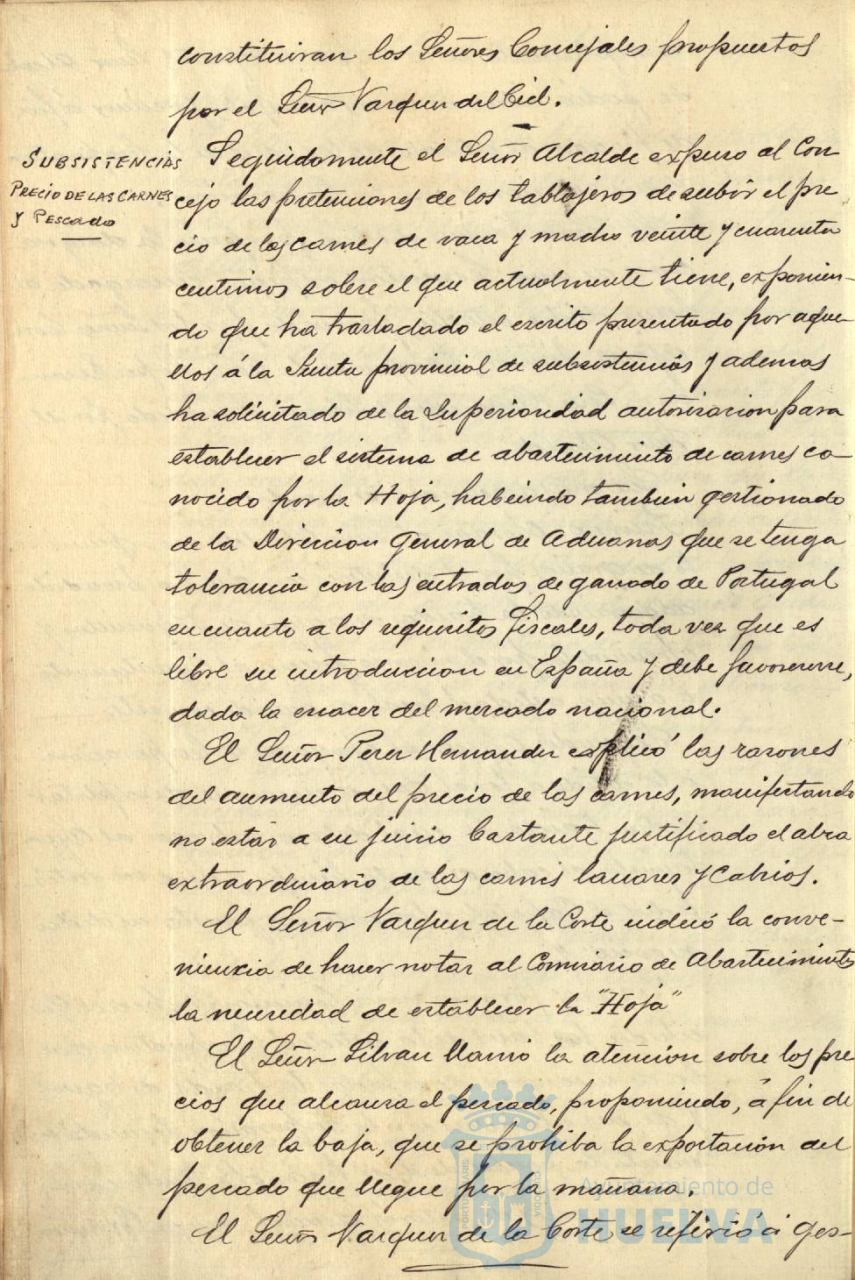 constituiran los Señores Concejales propuestos
por el Señor Vazquez del Cid.
SUBSISTENCIAS
PRECIO DE LAS CARNES
Y PESCADO
Seguidamente el Señor Alcalde expuso al Con-
cejo las pretenciones de los tablajeros de subir el pre
cio de las carnes de vaca y macho veinte y cuarenta
centimos sobre el que actualmente tiene, exponien-
do que ha trasladado el escrito presentado por aque-
llos á la Junta provincial de subsistencias y ademas
ha solicitado de la Superioridad autorizacion para
establecer el sistema de abastecimiento de carnes co-
nocido por la Hoja, habeindo tambien gestionado
de la Direccion General de Aduanas que se tenga
tolerancia con las entradas de ganado de Portugal
en cuanto a los requisitos fiscales, toda vez que es
libre su introduccion en España y debe favorecerse,
dada la escacez del mercado nacional.
El Señor Perez Hernandez explicó las razones
del aumento del precio de las carnes, manifestando
no estar a su juicio bastante justificado el alza
extraordinario de las carnes lanares y Cabrios.
El Señor Vazquez de la Corte indicó la conve-
niencia de hacer notar al Comisario de Abastecimiento
la necesidad de establecer la "Hoja"
El Señor Silvan llamó la atencion sobre los pre
cios que alcanza el pescado, proponiendo, á fin de
obtener la baja, que se prohiba la exportación del
pescado que llegue por la mañana.
El Señor Vazquez de la Corte se refirió a ges-
Ayuntamiento de
HUELVA